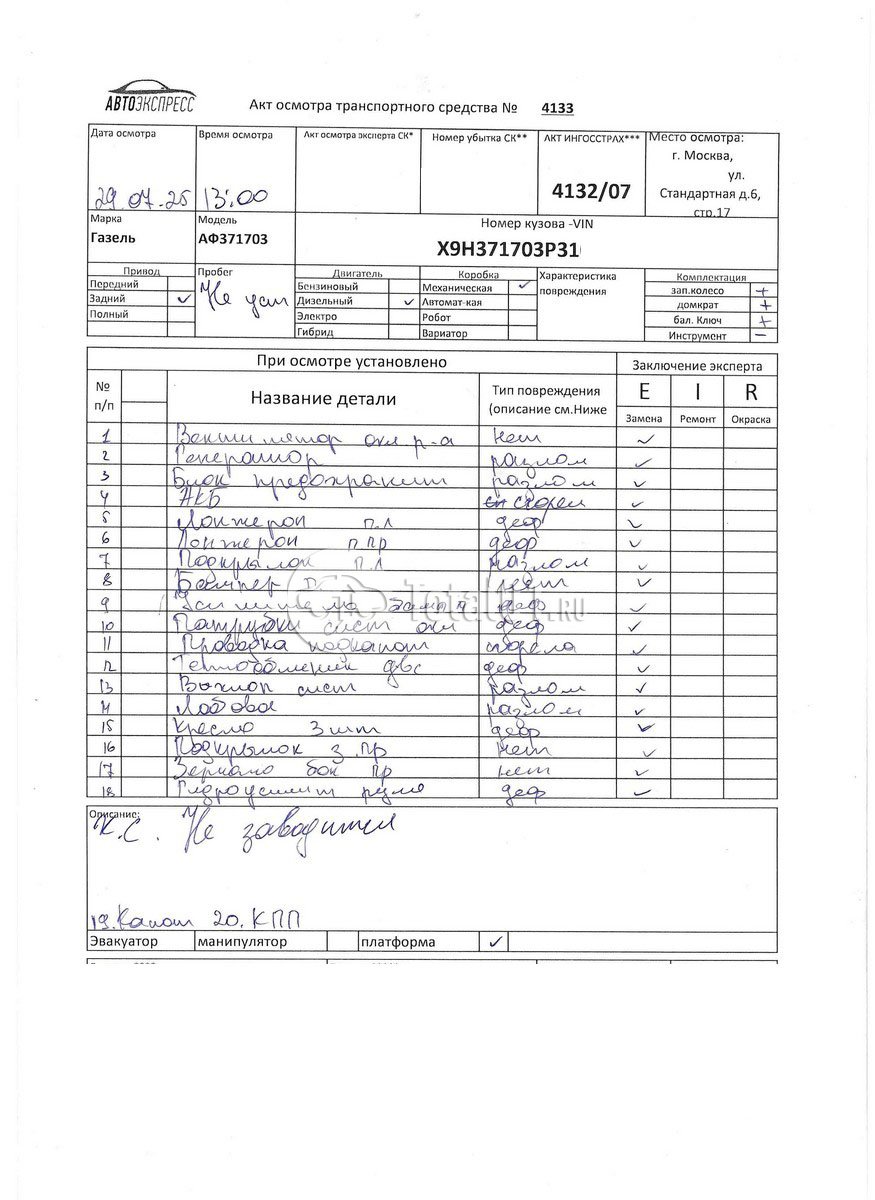 АВТОЭКСПРЕСС
Акт осмотра транспортного средства № 4133
Дата осмотра Время осмотра Акт осмотра эксперта СК* Номер убытка СК** АКТ ИНГОССТРАХ*** Место осмотра:
г. Москва,
ул.
29.07.25 13:00 4132/07 Стандартная д.6,
стр.17
Марка Модель Номер кузова -VIN
Газель АФ371703 X9H371703P31
Привод Пробег Двигатель Коробка Характеристика Комплектация
Передний Не уст Бензиновый Механическая ✓ повреждения зап.колесо +
Задний ✓ Дизельный ✓ Автомат-кая домкрат +
Полный Электро Робот бал. Ключ +
Гибрид Вариатор Инструмент –
При осмотре установлено Заключение эксперта
№ п/п Название детали Тип повреждения (описание см.Ниже E I R
Замена Ремонт Окраска
1 Вентилятор охл. р-а нет ✓
2 Генератор разлом ✓
3 Блок предохранит разлом ✓
4 АКБ сгорел ✓
5 Лонжерон п.л деф ✓
6 Лонжерон п пр деф ✓
7 Подкрылок п.л разлом ✓
8 Бампер п нет ✓
9 деф ✓
10 Патрубки сист охл деф ✓
11 Проводка подкапот сгорела ✓
12 Теплообменник двс деф ✓
13 Выхлоп сист разлом ✓
14 Лобовое разлом ✓
15 Кресло 3 шт деф ✓
16 Подкрылок з.пр нет ✓
17 Зеркало бок пр нет ✓
18 Гидроусилит руля деф ✓
Total01.RU
Описание:
К.С. Не заводится
19. Капот 20. КПП
Эвакуатор манипулятор платформа ✓